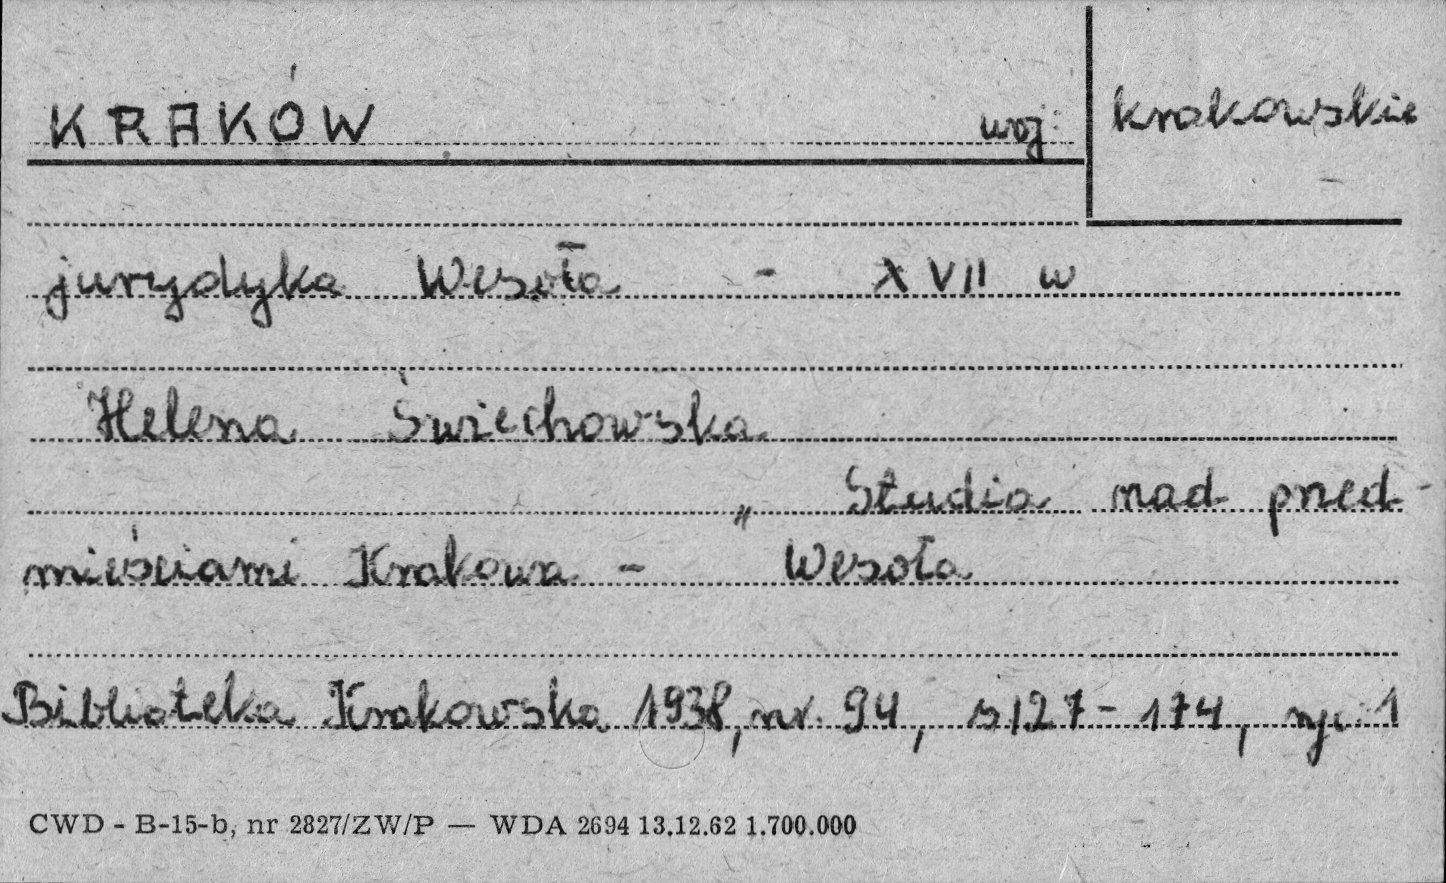 KRAKÓW woj: krakowskie
jurydyka Wesoła - XVII w
Helena Świechowska
„ Studia nad przed-
mieściami Krakowa - Wesoła
Biblioteka Krakowska 1938, nr. 94, s 127 - 174, ryc. 1
CWD - B-15-b, nr 2827/ZW/P — WDA 2694 13.12.62 1.700.000